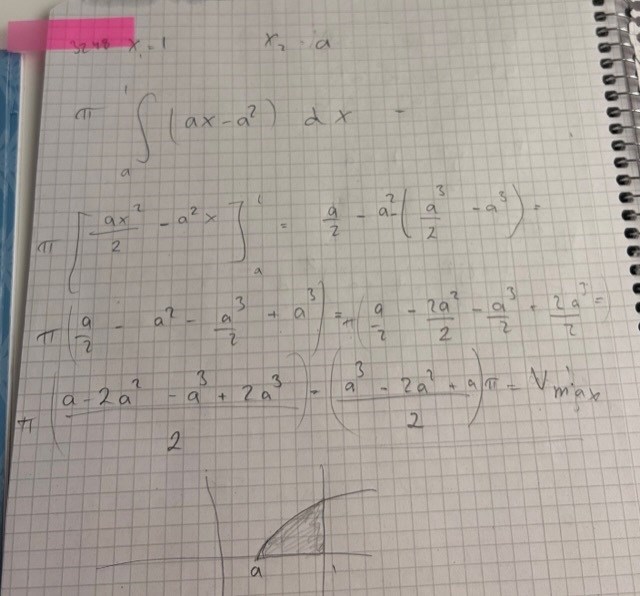 3248 x₁ = 1 x₂ = a
π ∫ₐ¹ (ax - a²) dx =
π [ax²/2 - a²x]ₐ¹ = a/2 - a² - (a³/2 - a³) =
π (a/2 - a² - a³/2 + a³) = π (a/2 - 2a²/2 - a³/2 + 2a³/2) =
π ((a - 2a² - a³ + 2a³)/2) = ((a³ - 2a² + a)/2) π = V max
a 1